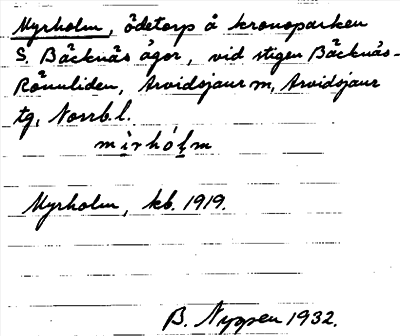 Myrholm, ödetorp å kronoparken
S. Bäcknäs ägor, vid stigen Bäcknäs-
Rönnliden, Arvidsjaur sn, Arvidsjaur
tg, Norrb. l.
mirhólm
Myrholm, kb. 1919.
B. Nyppen 1932.